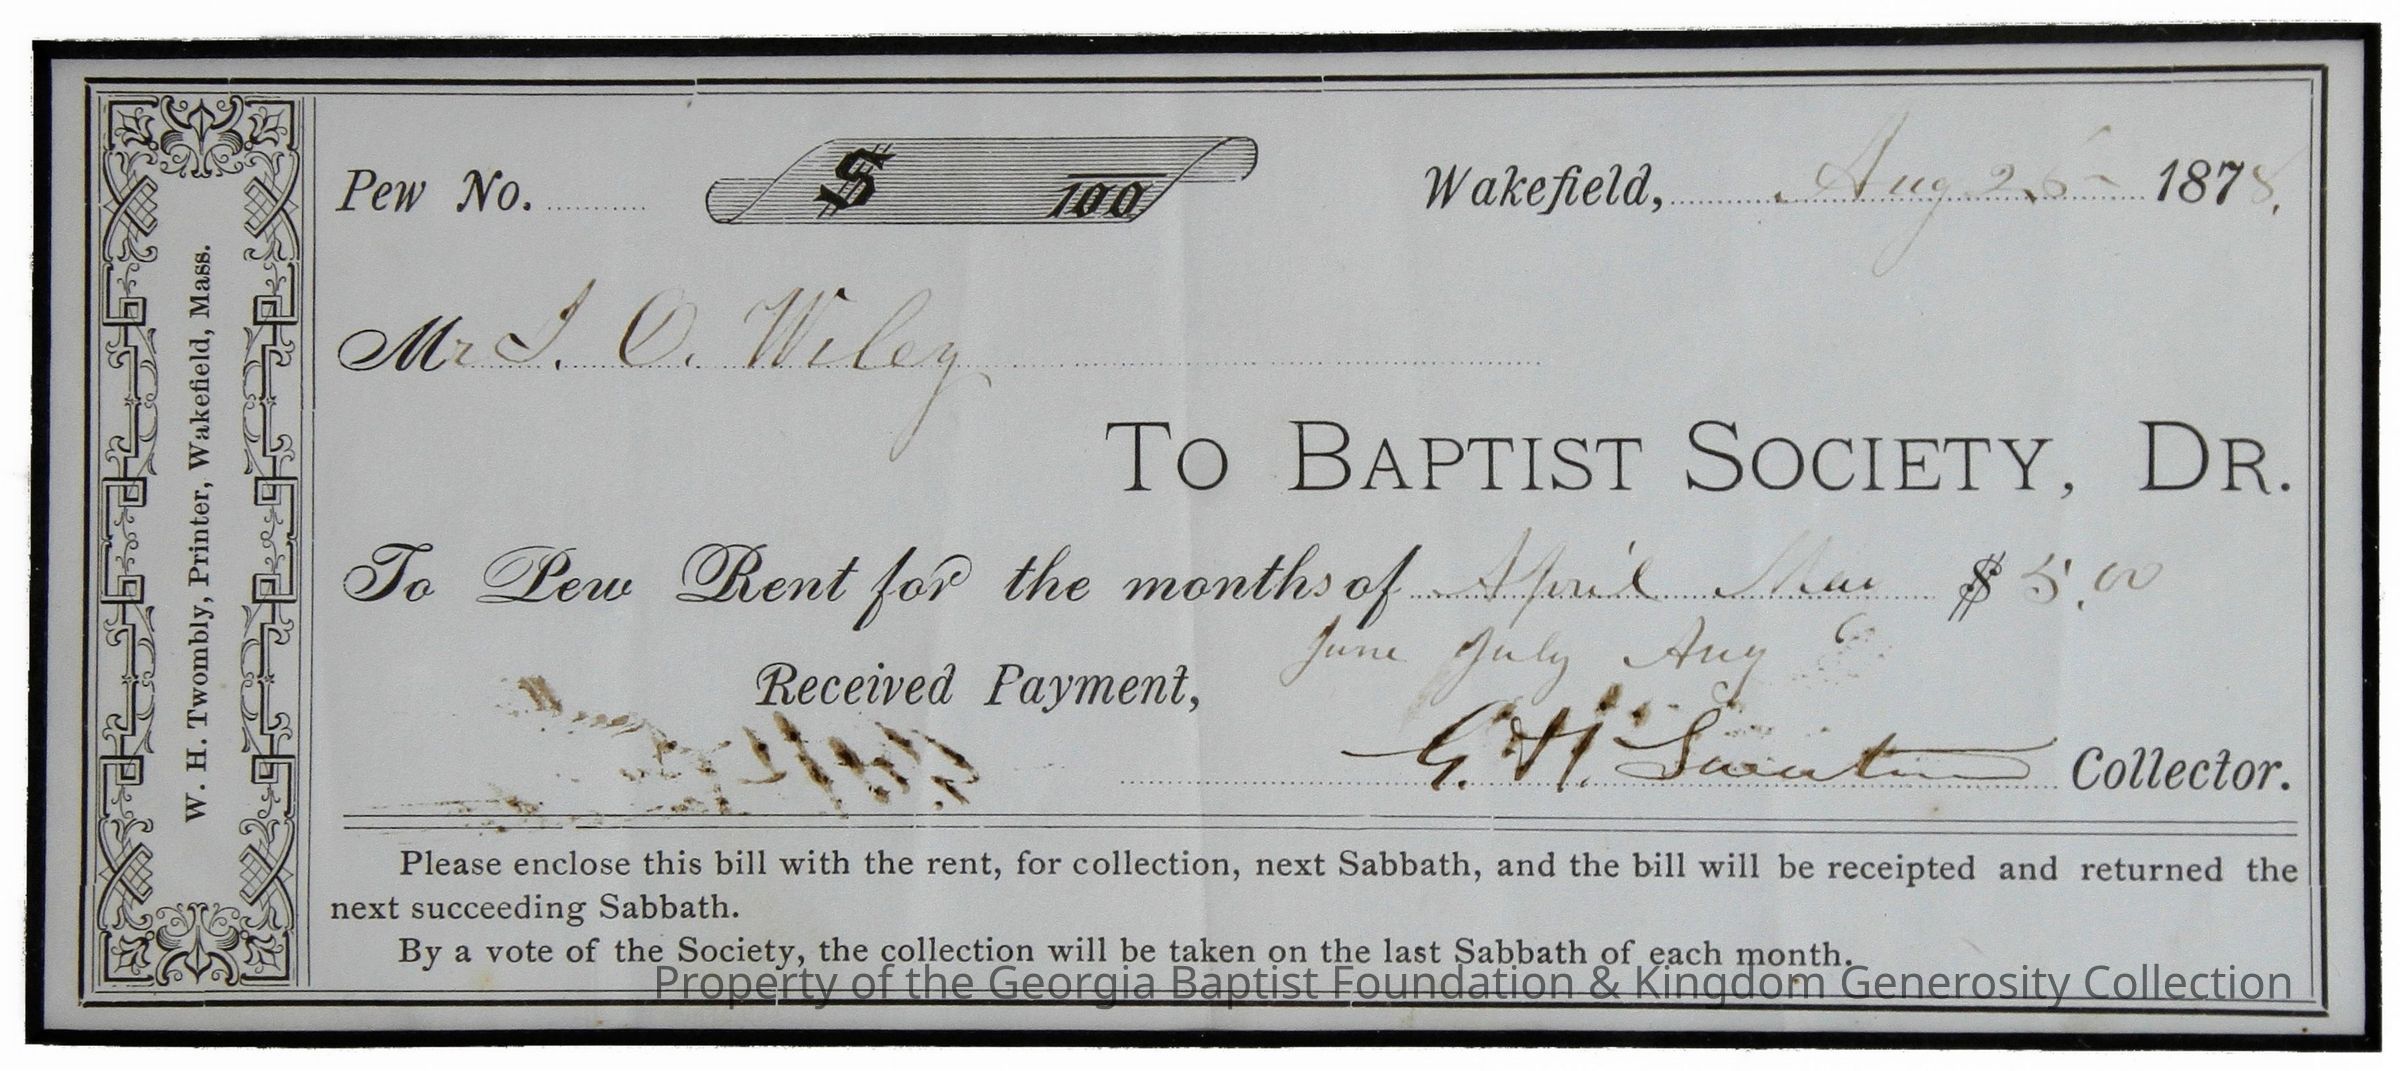 Pew No. $ /100 Wakefield, Aug 25 1878.
Mr I. O. Wiley
TO BAPTIST SOCIETY, DR.
To Pew Rent for the months of April May $ 5.00
June July Aug
Received Payment,
G. H. Collector.
Please enclose this bill with the rent, for collection, next Sabbath, and the bill will be receipted and returned the
next succeeding Sabbath.
By a vote of the Society, the collection will be taken on the last Sabbath of each month.
W. H. Twombly, Printer, Wakefield, Mass.
Property of the Georgia Baptist Foundation & Kingdom Generosity Collection